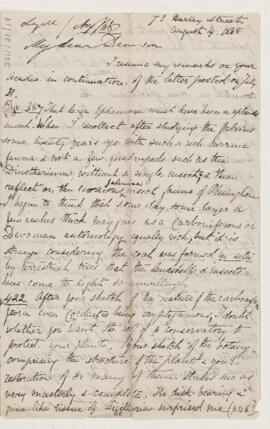 Lyell
73 Harley Street
August 4. 1868
My dear Dawson
I resume my remarks on your
Acadia in continuation of the letter posted on July
31.
Page 387 That large Ephemera must have been a splendid
insect. When I recollect after studying the faluns
some twenty years ago with such a rich marine
fauna & not a few quadrupeds such as the
Dinotherium without a single insect & then
reflect on the
insect fauna of Oeninghen
I begin to think that some day some large
may give us a Carboniferous or
Devonian entomology equally rich, but it is
strange considering the coal was formed in situ
by terrestrial trees that the landshells & insects
have come to light so unwillingly.
422 After your sketch of the nature of the carbonife-
rous
even Cordaites being cryptogamous, I doubt
whether you want the
of a conservatory to
protect your plants. Your sketch of the botany
comprising the structure of the plants & your
restoration of so many of them strikes me as
very masterly & complete. The disk bearing &
pine-like tissue of Sigillaria surprised me